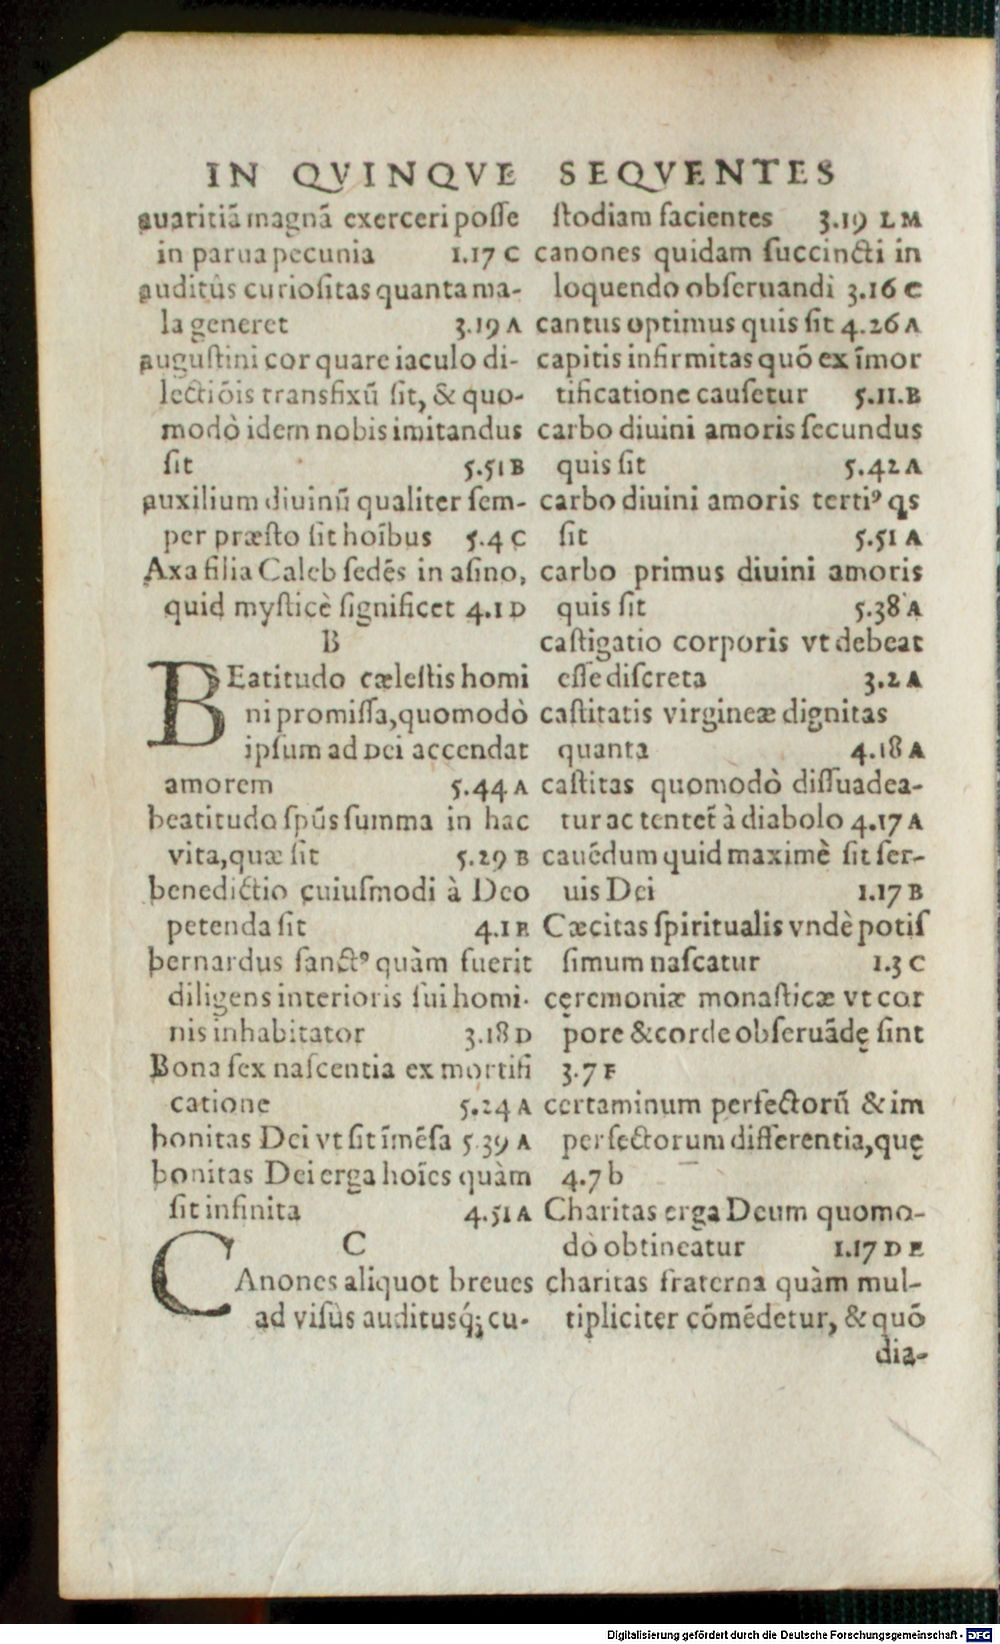 IN QVINQVE SEQVENTES
auaritiã magnã exerceri posse
in parua pecunia 1.17 C
auditûs curiositas quanta ma-
la generet 3.19 A
augustini cor quare iaculo di-
lectiõis transfixũ sit, & quo-
modò idem nobis imitandus
sit 5.51 B
auxilium diuinũ qualiter sem-
per præsto sit hoĩbus 5.4 C
Axa filia Caleb sedẽs in asino,
quid mysticè significet 4.1 D
B
BEatitudo cælestis homi
ni promissa, quomodò
ipsum ad Dei accendat
amorem 5.44 A
beatitudo spũs summa in hac
vita, quæ sit 5.29 B
benedictio cuiusmodi à Deo
petenda sit 4.1 E
bernardus sanctꝰ quàm fuerit
diligens interioris sui homi-
nis inhabitator 3.18 D
Bona sex nascentia ex mortifi
catione 5.24 A
bonitas Dei vt sit ĩmẽsa 5.39 A
bonitas Dei erga hoĩes quàm
sit infinita 4.51 A
C
CAnones aliquot breues
ad visùs auditusq́; cu-
stodiam facientes 3.19 L M
canones quidam succincti in
loquendo obseruandi 3.16 C
cantus optimus quis sit 4.26 A
capitis infirmitas quõ ex ĩmor
tificatione causetur 5.11.B
carbo diuini amoris secundus
quis sit 5.42 A
carbo diuini amoris tertiꝰ qs
sit 5.51 A
carbo primus diuini amoris
quis sit 5.38 A
castigatio corporis vt debeat
esse discreta 3.2 A
castitatis virgineæ dignitas
quanta 4.18 A
castitas quomodò dissuadea-
tur ac tentet̃ à diabolo 4.17 A
cauẽdum quid maximè sit ser-
uis Dei 1.17 B
Cæcitas spiritualis vndè potis
simum nascatur 1.3 C
cęremoniæ monasticæ vt cor
pore & corde obseruãdę sint
3.7 F
certaminum perfectorũ & im
perfectorum differentia, quę
4.7 b
Charitas erga Deum quomo-
dò obtineatur 1.17 D E
charitas fraterna quàm mul-
tipliciter cõmẽdetur, & quõ
dia-
Digitalisierung gefördert durch die Deutsche Forschungsgemeinschaft - DFG